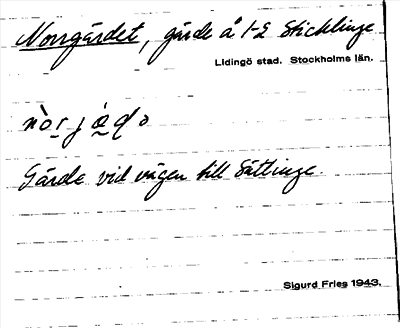 Norrgärdet, gärde å 1-2 Sticklinge
Lidingö stad. Stockholms län.
Gärde vid vägen till Sättinge.
Sigurd Fries 1943.